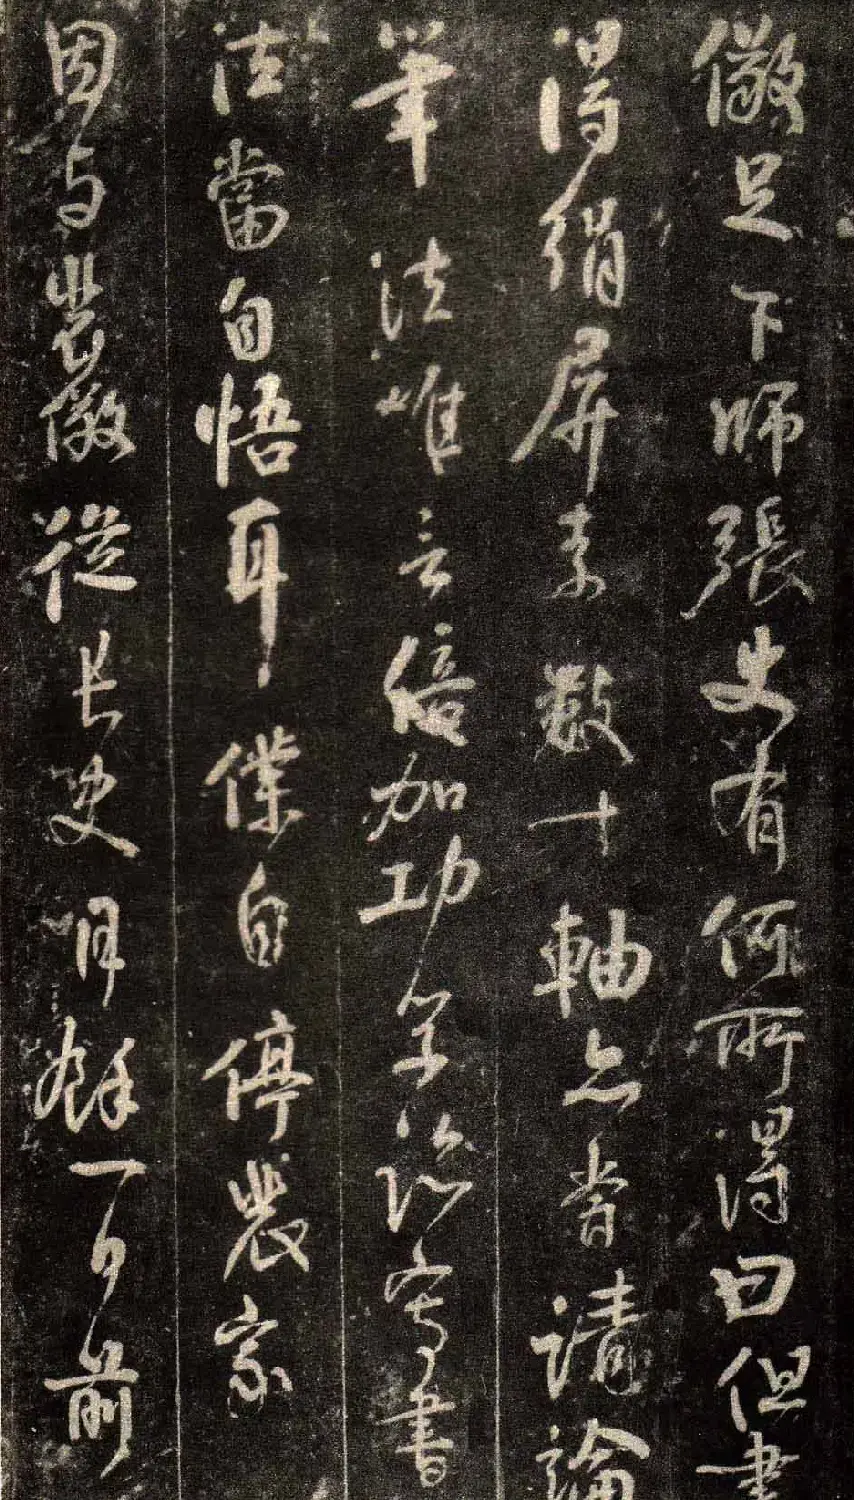 儆足下師張史有何所得曰但書
得絹屏素數十軸亦嘗請論
筆法唯言倍加功學臨寫書
法當自悟耳僕自停裴家
因与裴儆從長史餘一前